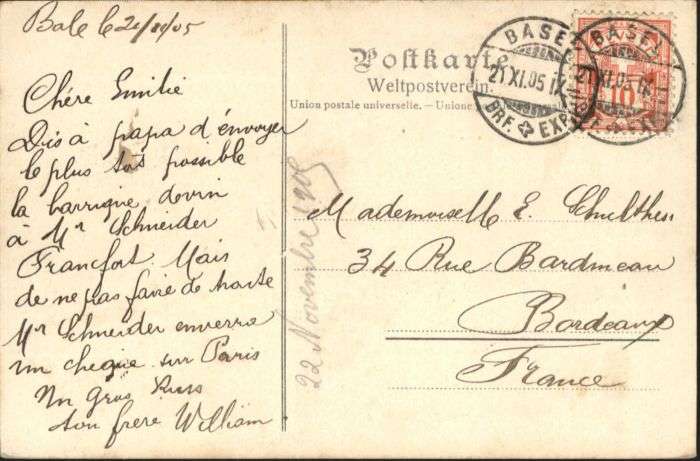 Bale le 21/11/05
Chére Emilie
Dis à papa d'envoyer
le plus tot possible
la barrique de vin
à Mr Schneider
Francfort Mais
de ne pas faire de traite
Mr Schneider enverra
un cheque sur Paris
Un Gros
ton frere William
Postkarte.
Weltpostverein.
Union postale universelle. — Unione
BASEL
21.XI.05.IX
BRF. EXP.
BASEL
21.XI.05.IX
EXP.
10
22 Novembre 1905
Mademoiselle E. Schulthess
34 Rue Bardineau
Bordeaux
France